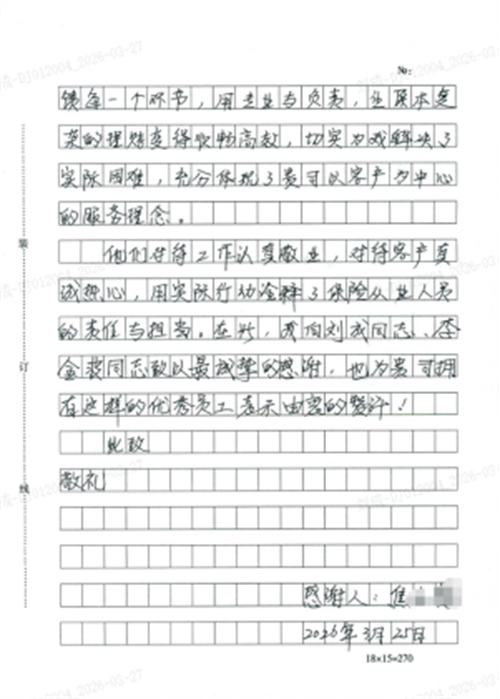 No:
馈每一个环节，用专业与负责，让原本复
杂的理赔变得顺畅高效，切实为我解决了
实际困难，充分体现了贵司以客户为中心
的服务理念。
他们对待工作认真敬业，对待客户真
诚热心，用实际行动诠释了保险从业人员
的责任与担当。在此，我向刘成同志、李
金裴同志致以最诚挚的感谢，也为贵司拥
有这样的优秀员工表示由衷的赞许！
此致
敬礼
感谢人：焦
2026年3月25日
18×15=270
装
订
线